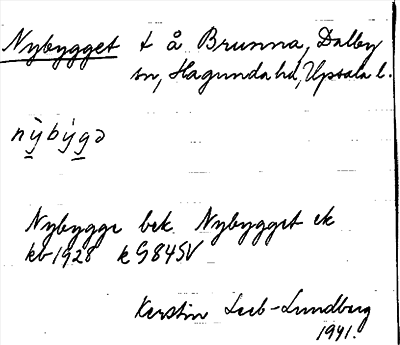 Nybygget t å Brunna, Dalby
sn, Hagunda hd, Upsala l.
nỳbýgə
Nybygge bek. Nybygget ek
kb 1928 k G84SV
Kerstin Leeb-Lundberg
1941.